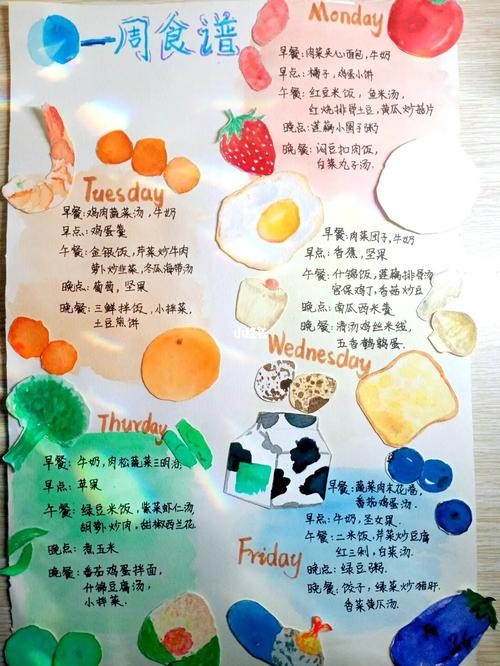 一周食谱
Monday
早餐:肉菜夹心面包,牛奶
早点:橘子,鸡蛋小饼
午餐:红豆米饭,鱼米汤,
红烧排骨土豆,黄瓜炒鸡片
晚点:莲藕小圆子粥
晚餐:闷豆扣肉饭,
白菜丸子汤.
Tuesday
早餐:鸡肉蔬菜汤,牛奶
早点:鸡蛋羹
午餐:金银饭,芹菜炒牛肉
萝卜炒韭菜,冬瓜海带汤
晚点:葡萄,坚果
晚餐:三鲜拌饭,小拌菜,
土豆煎饼
早餐:肉菜团子,牛奶
早点:香蕉,坚果
午餐:什锦饭,莲藕排骨汤
宫保鸡丁,香菇炒豆
晚点:南瓜西米羹
晚餐:清汤鸡丝米线,
五香鹌鹑蛋.
Wednesday
Thurday
早餐:牛奶,肉松蔬菜三明治
早点:苹果
午餐:绿豆米饭,紫菜虾仁汤
胡萝卜炒肉,甜椒西兰花
晚点:煮玉米
晚餐:番茄鸡蛋拌面,
什锦豆腐汤,
小拌菜.
早餐:蔬菜肉末花卷,
番茄鸡蛋汤.
早点:牛奶,圣女果.
Friday
午餐:二米饭,芹菜炒豆腐
白菜汤.
晚点:绿豆粥.
晚餐:饺子,绿菜炒猪肝
香菜黄瓜汤.